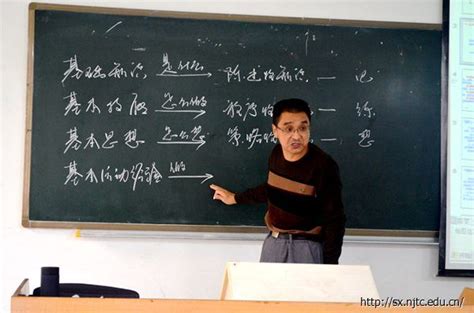 基础知识 是什么 陈述性知识 — 记
基本技能 程序性 — 练
基本思想 怎么想 策略性 — 想
基本活动经验
http://sx.njtc.edu.cn/